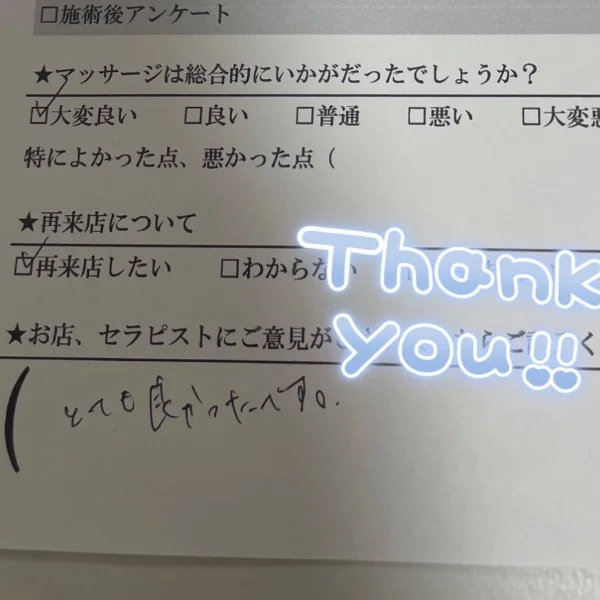 □施術後アンケート
★マッサージは総合的にいかがだったでしょうか？
☑大変良い □良い □普通 □悪い □大変悪
特によかった点、悪かった点（
★再来店について
☑再来店したい □わからない
Thank
★お店、セラピストにご意見が
you!!
（とても良かったです。